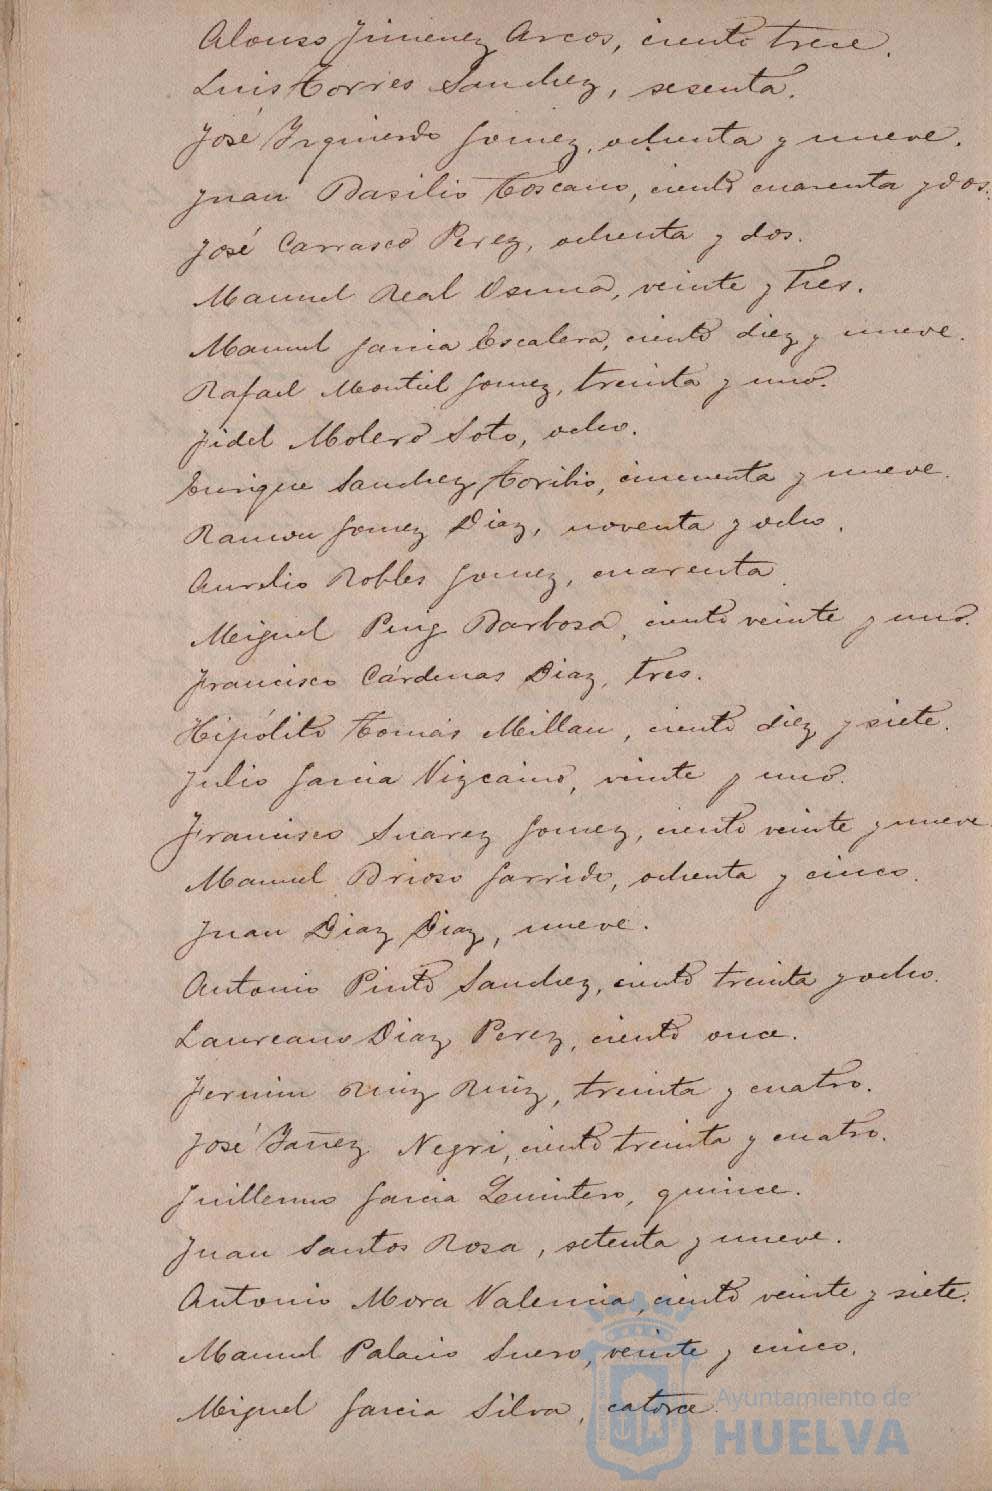 Alonso Jimenez Arcos, ciento trece.
Luis Torres Sanchez, sesenta.
José Izquierdo Gomez, ochenta y nueve.
Juan Basilio Toscano, ciento cuarenta y dos.
José Carrasco Perez, ochenta y dos.
Manuel Real Osuna, veinte y tres.
Manuel Garcia Escalera, ciento diez y nueve.
Rafael Montiel Gomez, treinta y uno.
Fidel Molero Soto, ocho.
Enrique Sanchez Torilio, cincuenta y nueve.
Ramon Gomez Diaz, noventa y ocho.
Aurelio Robles Gomez, cuarenta.
Miguel Puig Barbosa, ciento veinte y uno.
Francisco Cárdenas Diaz, tres.
Hipólito Tomás Millan, ciento diez y siete.
Julio Garcia Vizcaino, veinte y uno.
Francisco Suarez Gomez, ciento veinte y nueve.
Manuel Brioso Garrido, ochenta y cinco.
Juan Diaz Diaz, nueve.
Antonio Pinto Sanchez, ciento treinta y ocho.
Laureano Diaz Perez, ciento once.
Fermin Ruiz Ruiz, treinta y cuatro.
José Yañez Negri, ciento treinta y cuatro.
Guillermo Garcia Quintero, quince.
Juan Santos Rosa, setenta y nueve.
Antonio Mora Valencia, ciento veinte y siete.
Manuel Palacio Suero, veinte y cinco.
Miguel Garcia Silva, catorce.
Ayuntamiento de
HUELVA